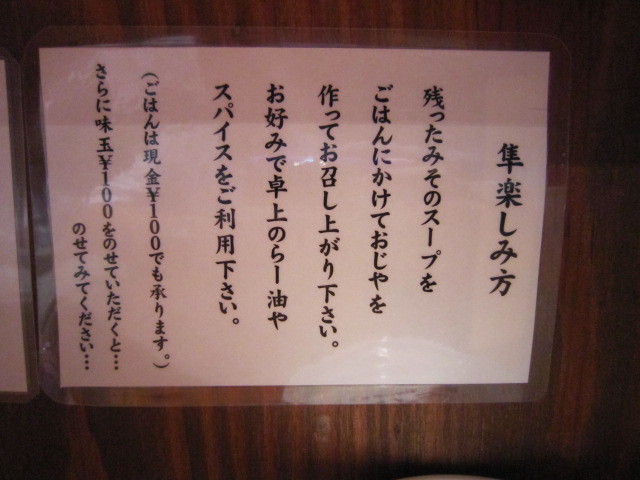 隼楽しみ方
残ったみそのスープを
ごはんにかけておじやを
作ってお召し上がり下さい。
お好みで卓上のらー油や
スパイスをご利用下さい。
(ごはんは現金¥100でも承ります。)
さらに味玉¥100をのせていただくと…
のせてみてください…